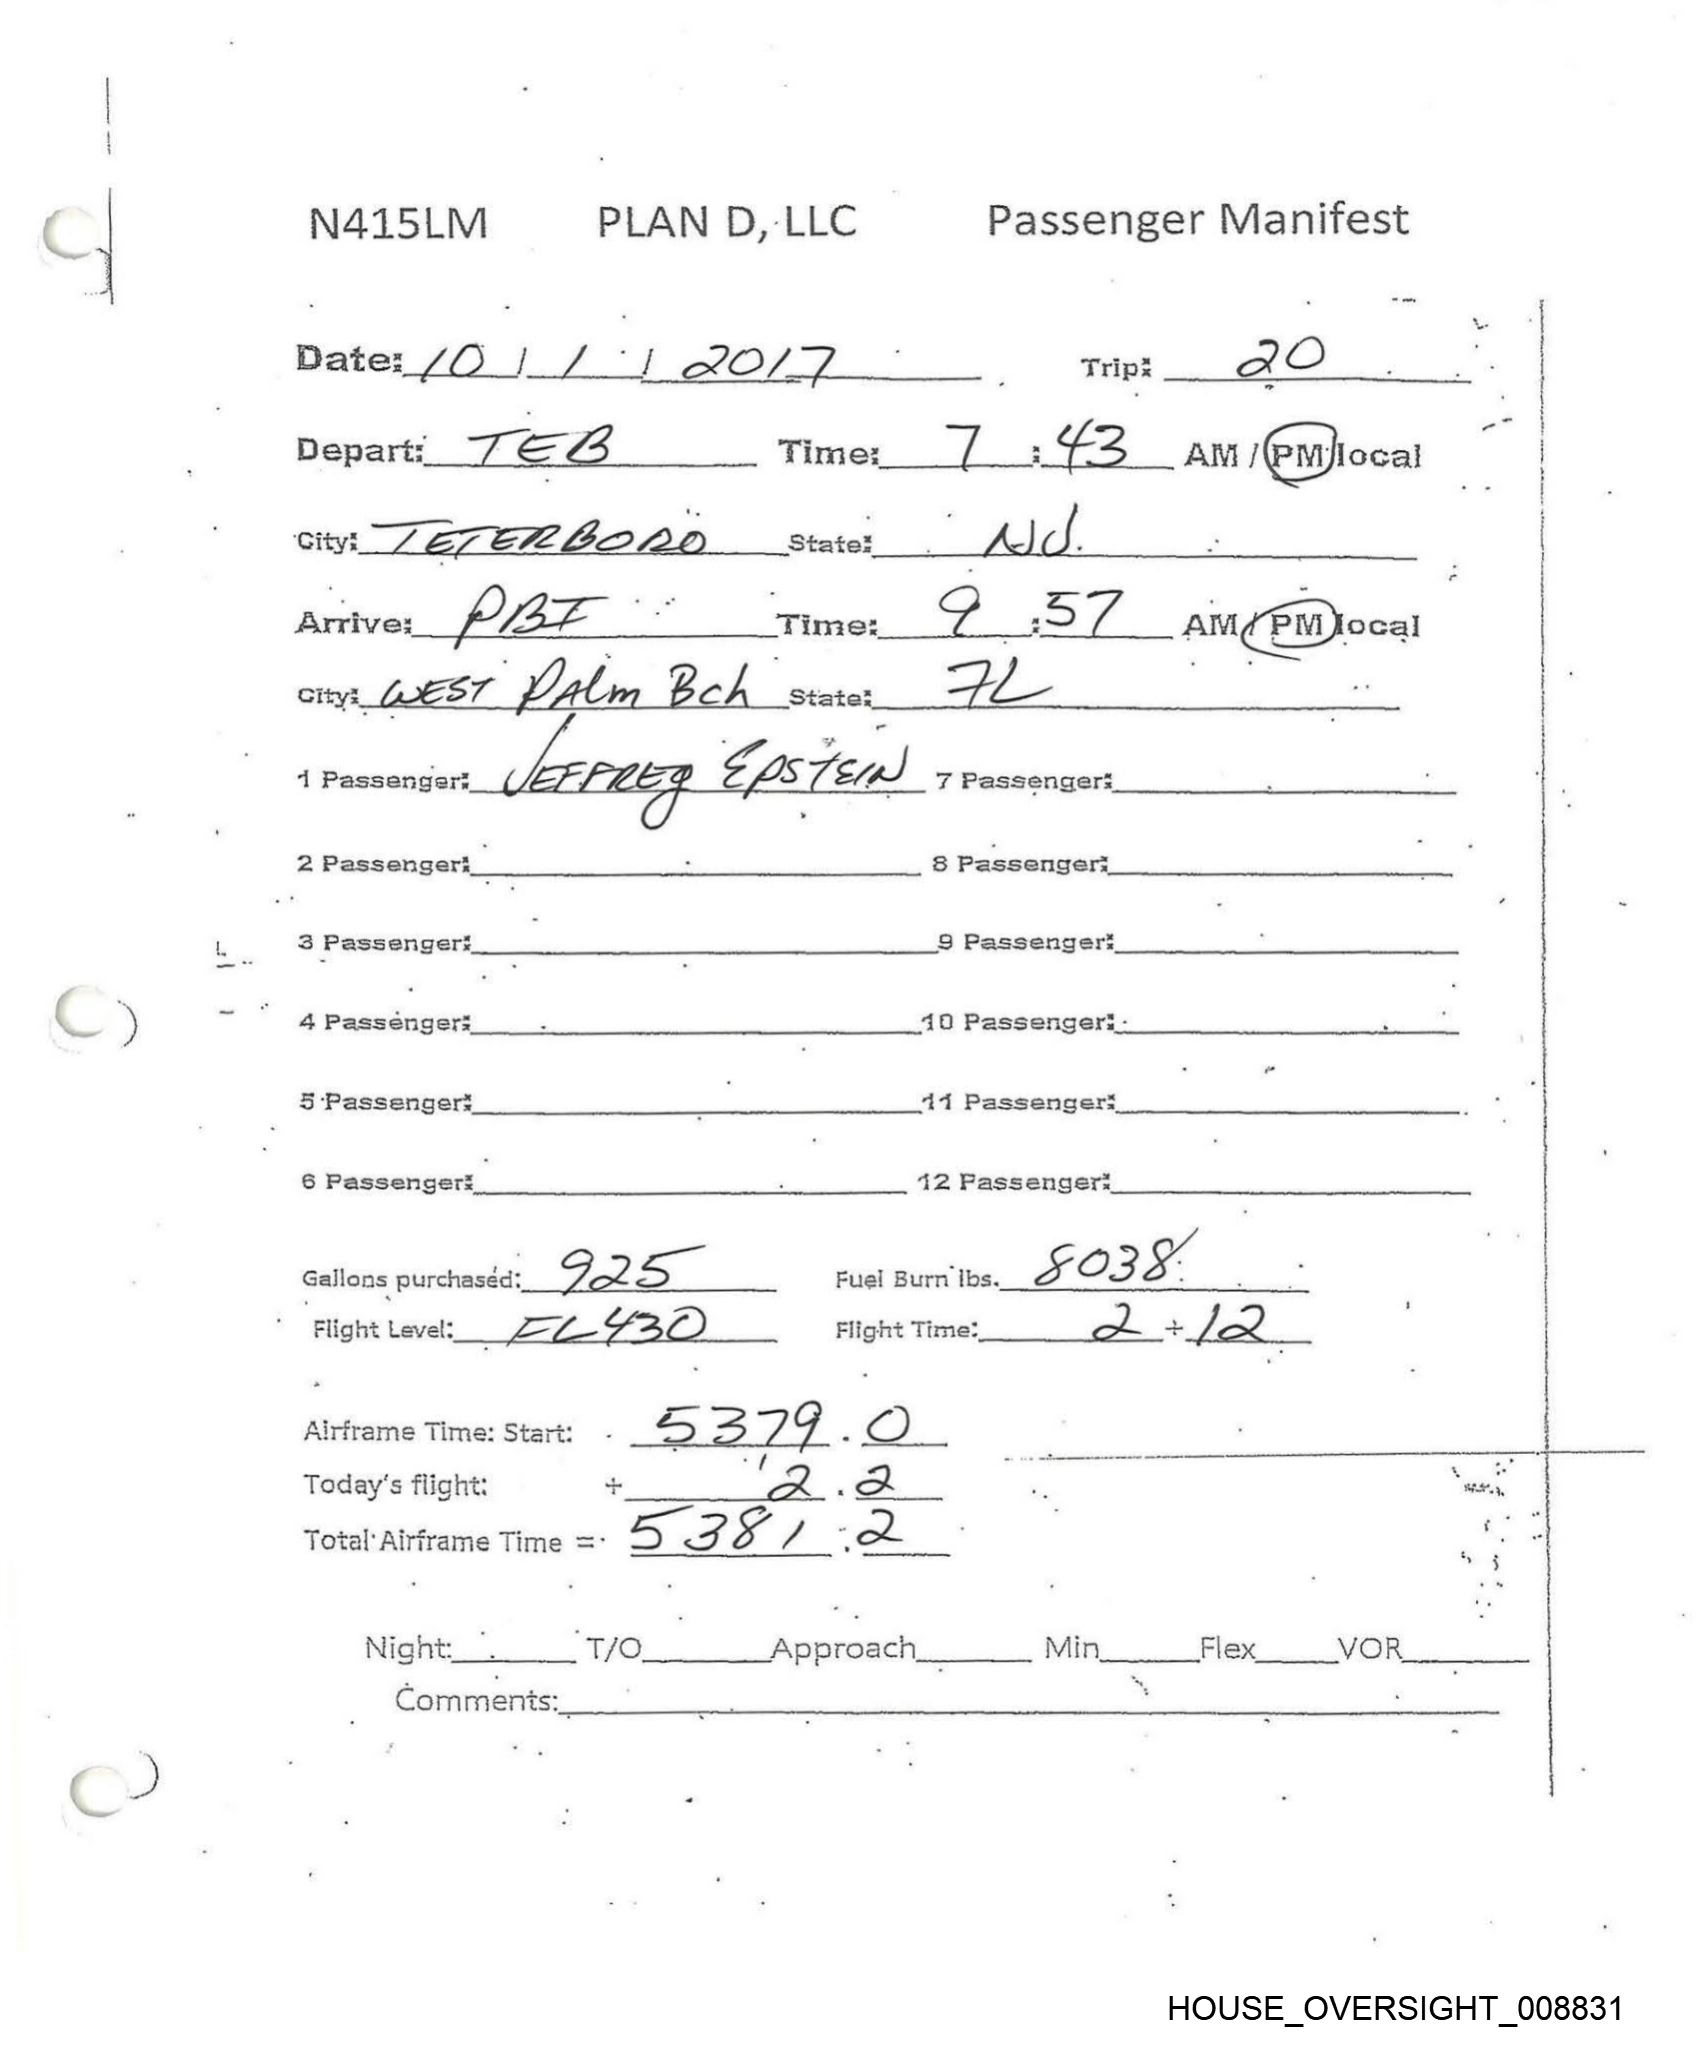 N415LM PLAN D, LLC Passenger Manifest
Date: 10 / 1 / 2017 Trip: 20
Depart: TEB Time: 7 : 43 AM / PM local
City: TETERBORO State: NJ.
Arrive: PBI Time: 9 :57 AM / PM local
City: WEST PAlm Bch State: FL
1 Passenger: JEFFREy EPSTEIN 7 Passenger:
2 Passenger: 8 Passenger:
3 Passenger: 9 Passenger:
4 Passenger: 10 Passenger:
5 Passenger: 11 Passenger:
6 Passenger: 12 Passenger:
Gallons purchased: 925 Fuel Burn lbs. 8038
Flight Level: FL430 Flight Time: 2 + 12
Airframe Time: Start: 5379.0
Today's flight: + 2.2
Total Airframe Time = 5381.2
Night: T/O Approach Min Flex VOR
Comments:
HOUSE_OVERSIGHT_008831